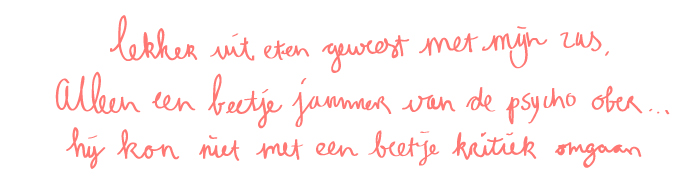 lekker uit eten geweest met mijn zus.
Alleen een beetje jammer van de psycho ober...
hij kon niet met een beetje kritiek omgaan